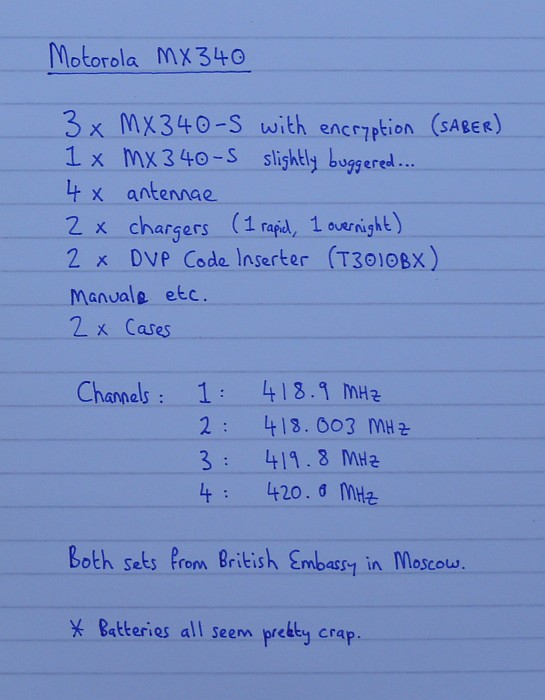 Motorola MX340
3 x MX340-S with encryption (SABER)
1 x MX340-S slightly buggered...
4 x antennae
2 x chargers (1 rapid, 1 overnight)
2 x DVP Code Inserter (T3010BX)
Manuals etc.
2 x Cases
Channels: 1: 418.9 MHz
2: 418.003 MHz
3: 419.8 MHz
4: 420.0 MHz
Both sets from British Embassy in Moscow.
* Batteries all seem pretty crap.